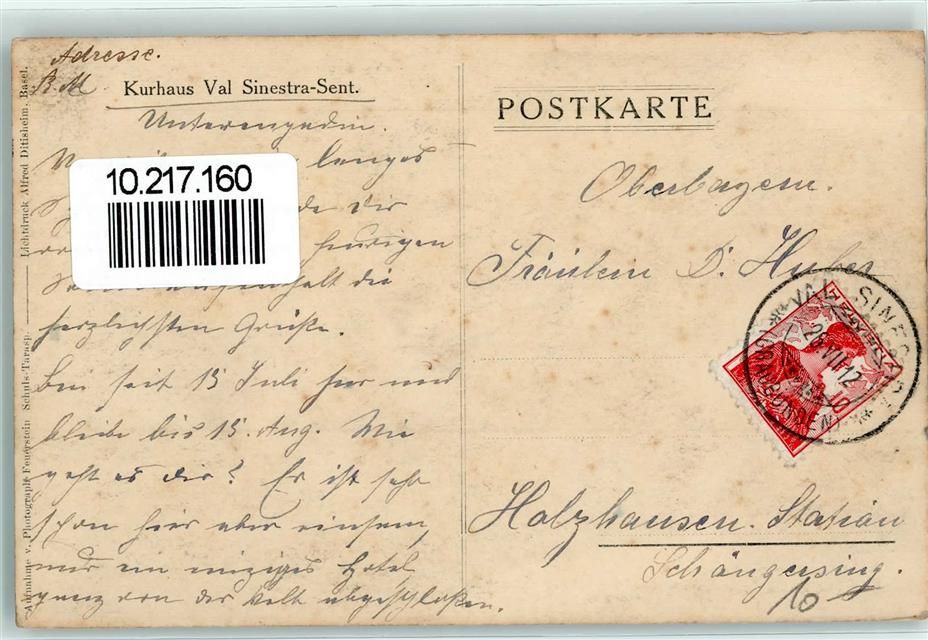 Adresse.
B. M
Kurhaus Val Sinestra-Sent.
Unterengadin.
langes
10.217.160
dir
heurigen
die
herzlichsten Grüße.
Bin seit 15 Juli hier und
bleibe bis 15. Aug. Wie
geht es dir? Es ist sehr
schön hier aber einsam,
nur ein einziges Hotel
ganz von der Welt abgeschloßen.
Aufnahme v. Photograph Feuerstein Schuls-Tarasp. Lichtdruck Alfred Ditisheim, Basel.
POSTKARTE
Oberbayern.
Fräulein D. Huber
VAL SINESTRA
VII 12
10
Holzhausen. Station
Schöngeising.
10